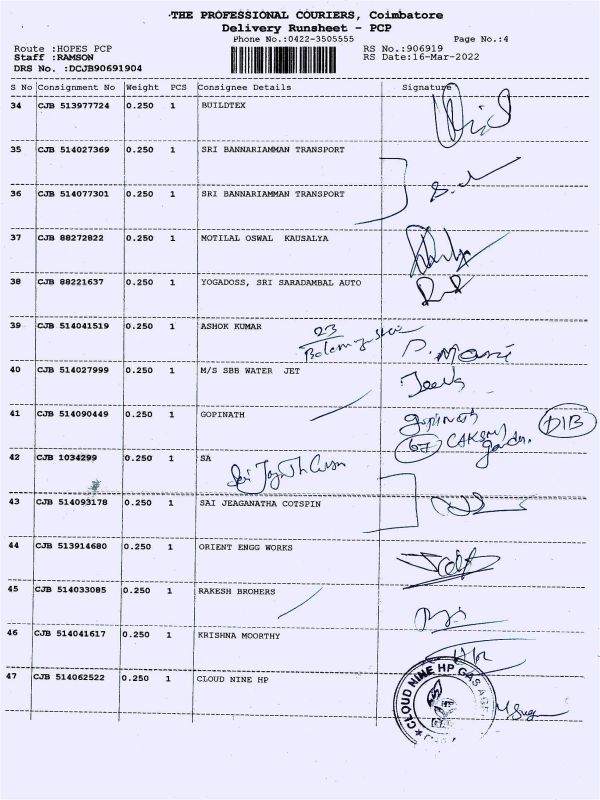 THE PROFESSIONAL COURIERS, Coimbatore
Delivery Runsheet - PCP
Phone No.:0422-3505555 Page No.:4
Route :HOPES PCP RS No.:906919
Staff :RAMSON RS Date:16-Mar-2022
DRS No. :DCJB90691904
S No Consignment No Weight PCS Consignee Details Signature
34 CJB 513977724 0.250 1 BUILDTEX
35 CJB 514027369 0.250 1 SRI BANNARIAMMAN TRANSPORT
36 CJB 514077301 0.250 1 SRI BANNARIAMMAN TRANSPORT
37 CJB 88272822 0.250 1 MOTILAL OSWAL KAUSALYA
38 CJB 88221637 0.250 1 YOGADOSS, SRI SARADAMBAL AUTO
39 CJB 514041519 0.250 1 ASHOK KUMAR 23
P. Mani
40 CJB 514027999 0.250 1 M/S SBB WATER JET Jeeva
41 CJB 514090449 0.250 1 GOPINATH Gopinath DIB
67
42 CJB 1034299 0.250 1 SA
43 CJB 514093178 0.250 1 SAI JEAGANATHA COTSPIN
44 CJB 513914680 0.250 1 ORIENT ENGG WORKS
45 CJB 514033085 0.250 1 RAKESH BROHERS
46 CJB 514041617 0.250 1 KRISHNA MOORTHY
47 CJB 514062522 0.250 1 CLOUD NINE HP
CLOUD NINE HP GAS